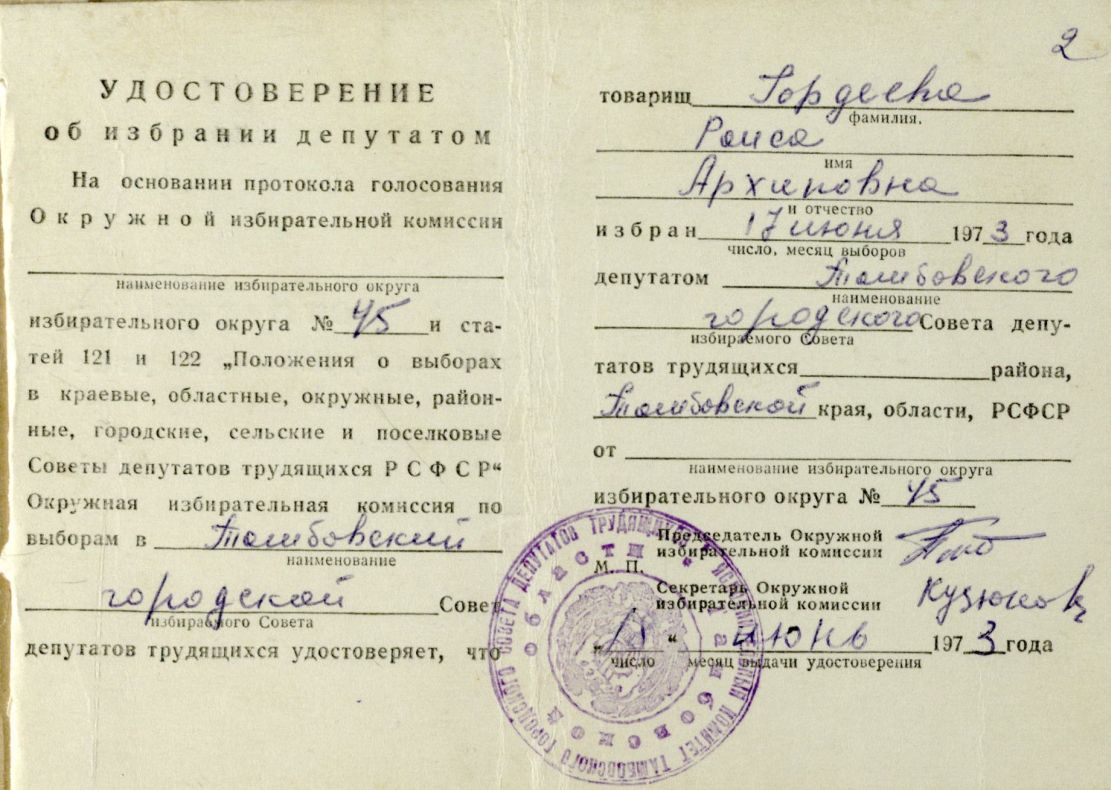 УДОСТОВЕРЕНИЕ
об избрании депутатом
На основании протокола голосования
Окружной избирательной комиссии
наименование избирательного округа
избирательного округа № 45 и ста-
тей 121 и 122 „Положения о выборах
в краевые, областные, окружные, район-
ные, городские, сельские и поселковые
Советы депутатов трудящихся РСФСР“
Окружная избирательная комиссия по
выборам в Тамбовский
наименование
городской Совет
избираемого Совета
депутатов трудящихся удостоверяет, что
2
товарищ Гордеева
фамилия,
Раиса
имя
Архиповна
и отчество
избран 17 июня 1973 года
число, месяц выборов
депутатом Тамбовского
наименование
городского Совета депу-
избираемого Совета
татов трудящихся района,
Тамбовской края, области, РСФСР
от
наименование избирательного округа
избирательного округа № 45
Председатель Окружной
избирательной комиссии
М. П.
Секретарь Окружной
избирательной комиссии
„ “ июнь 1973 года
число месяц выдачи удостоверения
ИСПОЛНИТЕЛЬНЫЙ КОМИТЕТ ТАМБОВСКОГО ГОРОДСКОГО СОВЕТА ДЕПУТАТОВ ТРУДЯЩИХСЯ
Тамбовской области